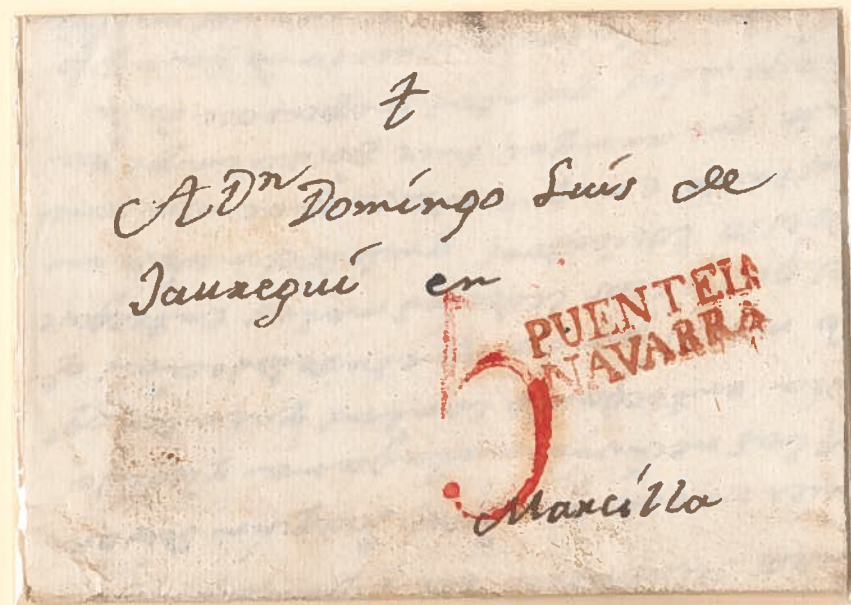 †
A Dn Domingo Luis de
Jauregui en
5
PUENTE LA
NAVARRA
Marcilla